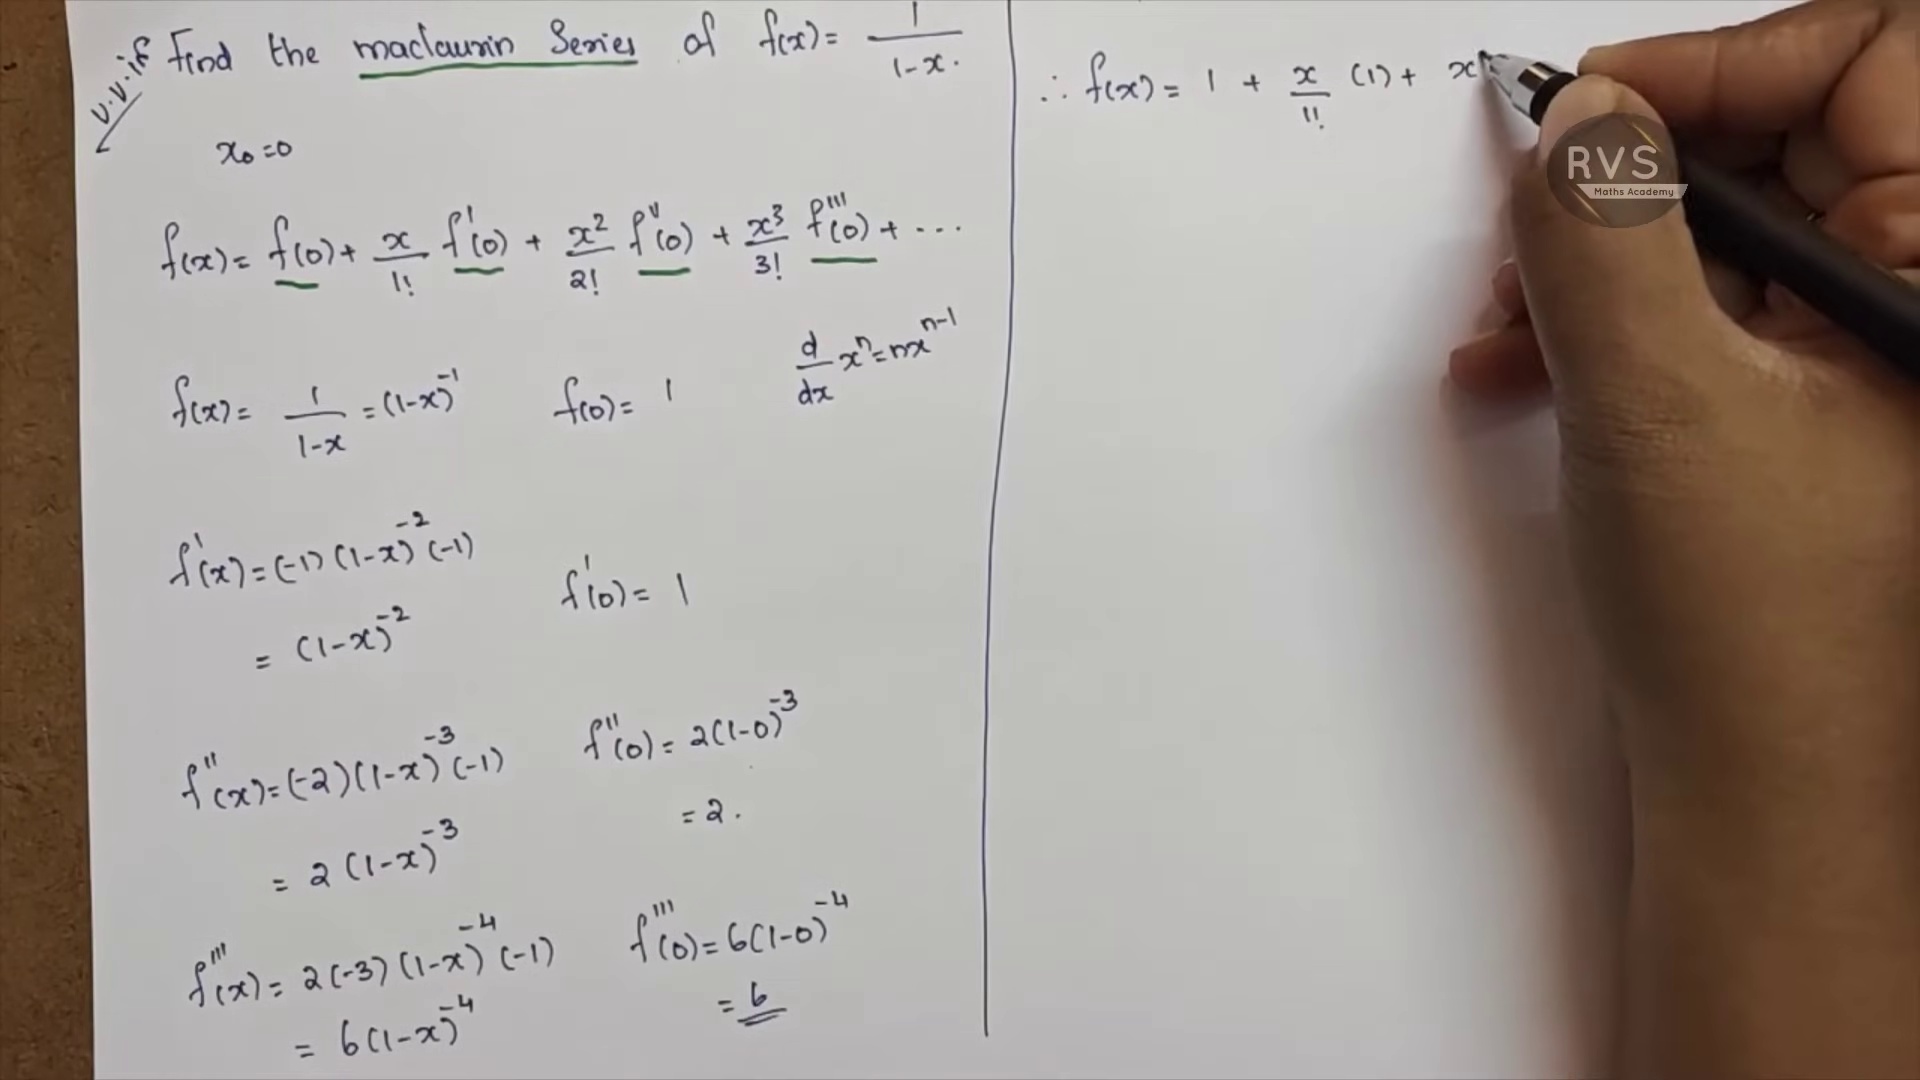 v.v.if Find the maclaurin Series of f(x) = 1/1-x.
x₀=0
f(x) = f(0) + x/1! f'(0) + x²/2! f''(0) + x³/3! f'''(0) + ...
f(x) = 1/1-x = (1-x)⁻¹ f(0) = 1 d/dx xⁿ = nxⁿ⁻¹
f'(x) = (-1) (1-x)⁻² (-1)
= (1-x)⁻² f'(0) = 1
f''(x) = (-2) (1-x)⁻³ (-1) f''(0) = 2(1-0)⁻³
= 2 (1-x)⁻³ = 2.
f'''(x) = 2(-3) (1-x)⁻⁴ (-1) f'''(0) = 6(1-0)⁻⁴
= 6(1-x)⁻⁴ = 6
∴ f(x) = 1 + x/1! (1) + x
RVS
Maths Academy